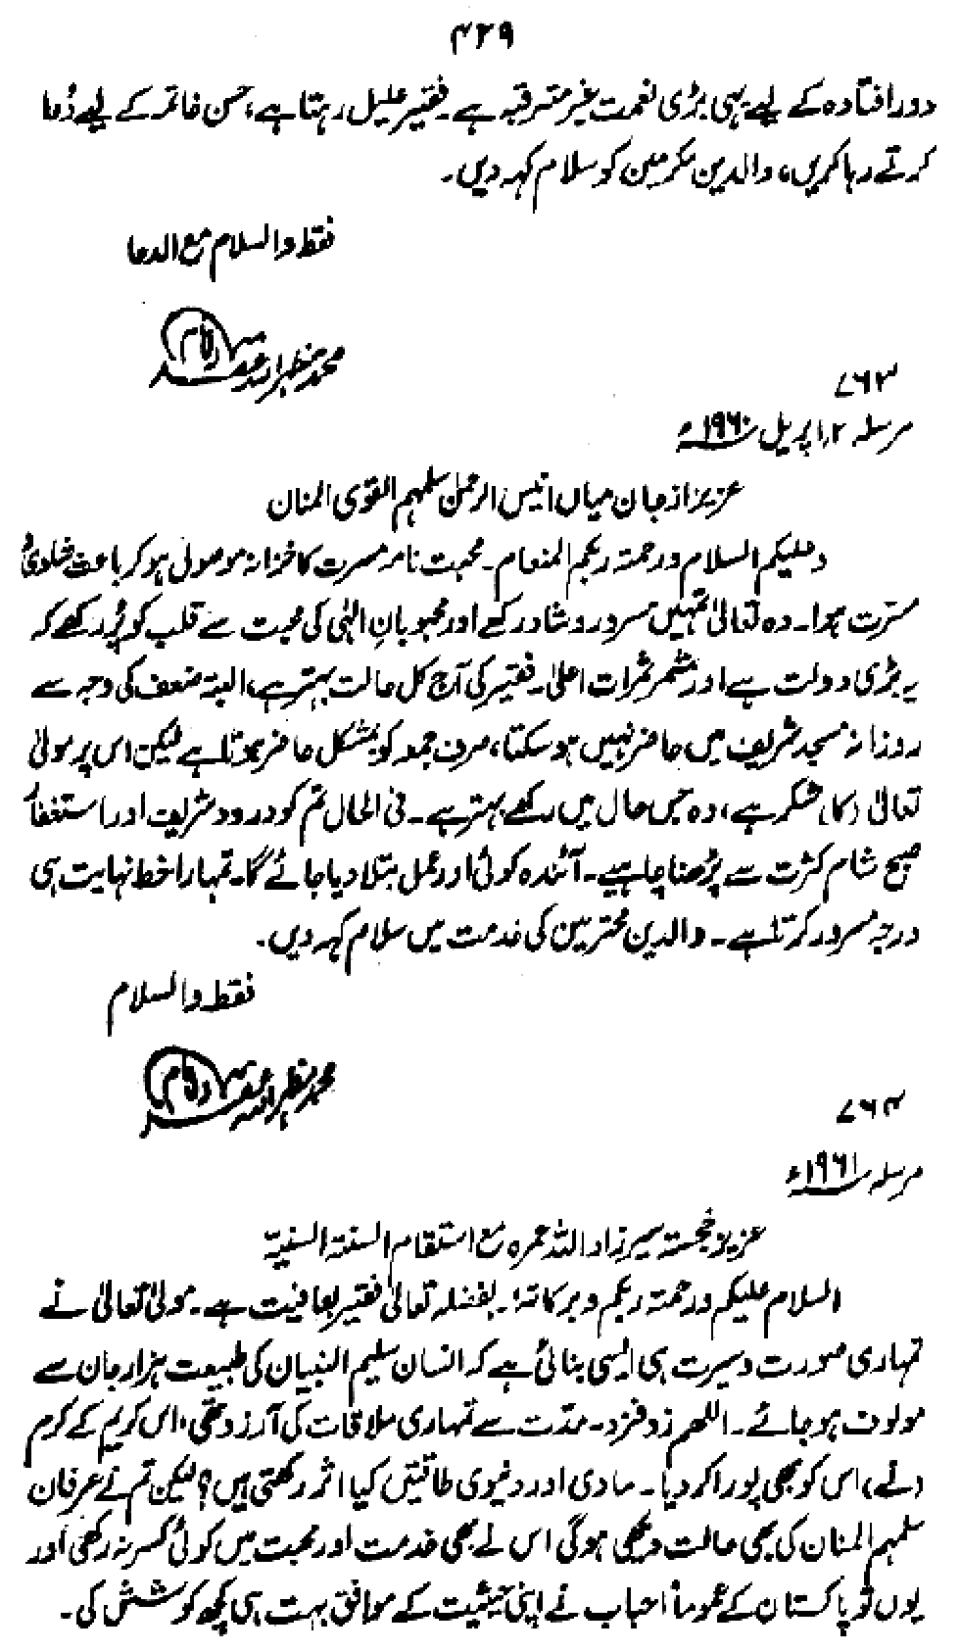 ۴۲۹
دور افتادہ کے لیے یہی بڑی نعمت غیر مترقبہ ہے۔ فقیر علیل رہتا ہے، حسن خاتمہ کے لیے دُعا
کرتے رہا کریں، والدین مکرمین کو سلام کہہ دیں۔
فقط والسلام مع الدعا
محمد مظہر اللہ
۷۶۳
مرسلہ ۱۲ اپریل ۱۹۶۰ء
عزیز از جان میاں انیس الرحمٰن سلمہم القوی المنان
وعلیکم السلام ورحمۃ ربکم المنعام۔ محبت نامہ مسرت کا خزانہ موصول ہو کر باعث
مسرت ہوا۔ وہ تعالیٰ تمہیں مسرور و شاد رکھے اور محبوبانِ الٰہی کی محبت سے قلب کو پُر رکھے کہ
یہ بڑی دولت ہے اور مثمر ثمرات اعلیٰ۔ فقیر کی آج کل حالت بہتر ہے، البتہ ضعف کی وجہ سے
روزانہ مسجد شریف میں حاضر نہیں ہو سکتا، صرف جمعہ کو بمشکل حاضر ہوتا ہے لیکن اس پر مولیٰ
تعالیٰ (کا) شکر ہے، وہ جس حال میں رکھے بہتر ہے۔ فی الحال تم کو درود شریف اور استغفار
صبح شام کثرت سے پڑھنا چاہیے۔ آئندہ کوئی اور عمل بتلا دیا جائے گا۔ تمہارا خط نہایت ہی
درجہ مسرور کرتا ہے۔ والدین محترمین کی خدمت میں سلام کہہ دیں۔
فقط والسلام
محمد مظہر اللہ
۷۶۴
مرسلہ ۱۹۶۱ء
عزیز خجستہ سیر زاد اللہ عمرہ مع استقام السنۃ السنیۃ
السلام علیکم ورحمۃ ربکم وبرکاتہ۔ بفضلہ تعالیٰ فقیر بعافیت ہے۔ مولیٰ تعالیٰ نے
تمہاری صورت و سیرت ہی ایسی بنائی ہے کہ انسان سلیم البنیان کی طبیعت ہزار جان سے
مولوف ہو جائے۔ اللھم زد فزد۔ مدّت سے تمہاری ملاقات کی آرزو تھی، اس کریم کے کرم
(نے) اس کو بھی پورا کر دیا۔ مادی اور دنیوی طاقتیں کیا اثر رکھتی ہیں؟ لیکن تم نے عرفان
سلمہم المنان کی بھی حالت دیکھی ہوگی اس نے بھی خدمت اور محبت میں کوئی کسر نہ رکھی اور
یوں تو پاکستان کے عموماً احباب نے اپنی حیثیت کے موافق بہت ہی کچھ کوشش کی۔